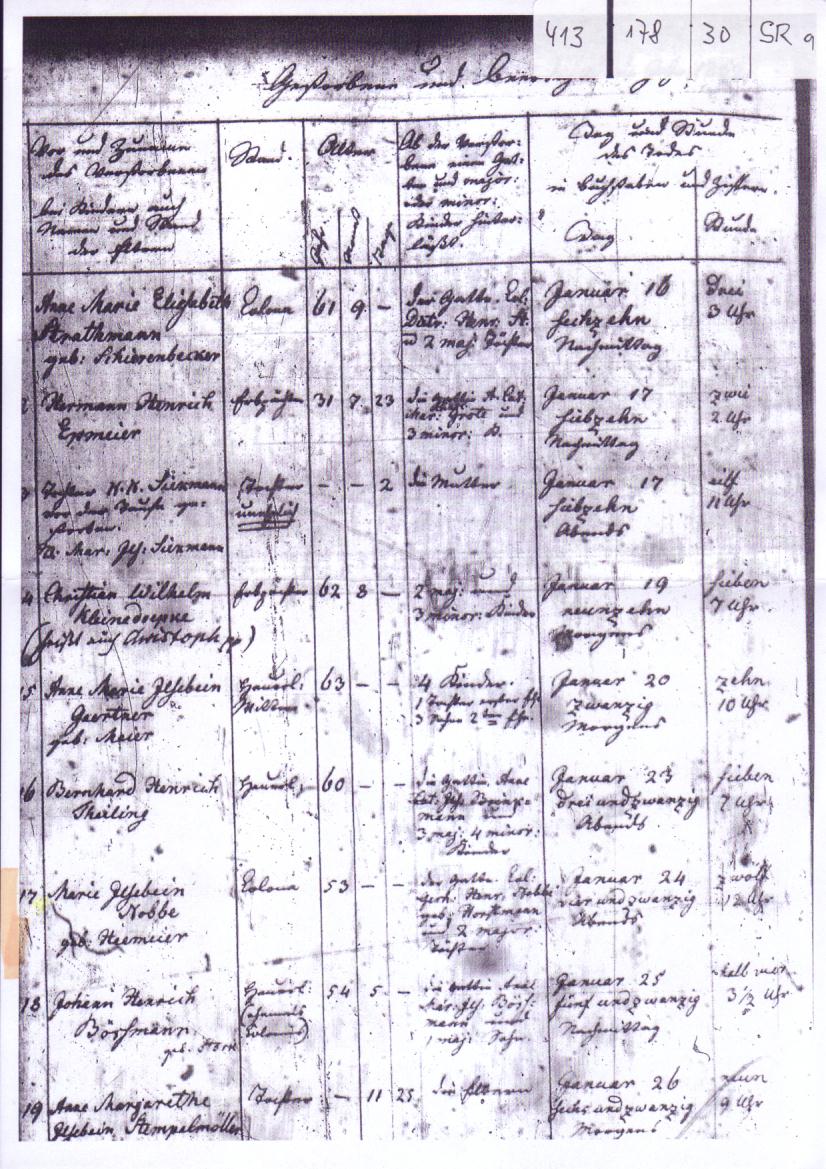 413 178 30 SR 9
Gestorbene und
Vor und Zunamen
des Verstorbenen
bei Kindern auch
Namen und Stand
der Eltern
Stand.
Alter
Jahr
Monat
Tage
Ob der Verstor-
bene einen Gat-
ten und major:
oder minor:
Kinder hinter-
läßt.
Tag und Stunde
des Todes
in Buchstaben und Ziffern.
Tag
Stunde
Anne Marie Elisabeth
Strathmann
geb: Schierenbecker
Colona
61 9 —
der Gatte. Col:
Henr: St.
u 2 maj: Töchter
Januar 16
sechzehn
Nachmittag
drei
3 Uhr
Hermann Heinrich
Epmeier
Erbpächter
31 7 23
die Gattin A. Cat.
Grote und
3 minor: K.
Januar 17
siebzehn
Nachmittag
zwei
2 Uhr
Tochter
vor der Taufe ge-
storben.
Siekmann
Tochter
unehelich
— — 2
die Mutter
Januar 17
siebzehn
Abends
eilf
11 Uhr
4 Christian Wilhelm
Kleinedoepke
(heißt auch Christoph pp)
Erbpächter
62 8 —
2 maj: und
3 minor: Kinder
Januar 19
neunzehn
Morgens
sieben
7 Uhr.
5 Anne Marie Ilsebein
Gaertner
geb: Meier
Heuerl:
Wittwe
63 — —
4 Kinder.
1 Tochter erster Ehe
3 Söhne 2ter Ehe.
Januar 20
zwanzig
Morgens
zehn
10 Uhr.
6 Bernhard Henrich
Theiling
Heuerl:
60 — —
die Gattin Anne
Cat:
mann und
3 maj: 4 minor:
Kinder
Januar 23
drei und zwanzig
Abends
sieben
7 Uhr
17 Marie Ilsebein
Nobbe
geb: Heemeier
Colona
53 — —
der Gatte. Col:
Henr. Nobbe
geb: Horstmann
und 2 major:
Töchter
Januar 24
vier und zwanzig
Abends
zwölf
12 Uhr
18 Johann Henrich
Börsmann
Heuerl:
(ehemals
Colonus)
54 5 —
die Gattin
mann und
1 maj: Sohn.
Januar 25
fünf und zwanzig
Nachmittag
halb vier
3 1/2 Uhr
19 Anne Margarethe
Ilsebein Stempelmöller
Tochter
— 11 25
die Eltern
Januar 26
sechs und zwanzig
Morgens
neun
9 Uhr